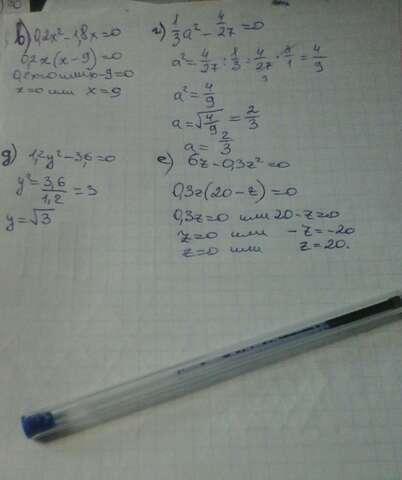 в) 0,2x² - 1,8x = 0
0,2x(x - 9) = 0
0,2x=0 или x-9=0
x=0 или x=9
г) 1/3 a² - 4/27 = 0
a² = 4/27 : 1/3 = 4/27 · 3/1 = 4/9
9
a² = 4/9
a = √4/9 = 2/3
a = 2/3
д) 1,2y² - 3,6 = 0
y² = 3,6/1,2 = 3
y = √3
е) 6z - 0,3z² = 0
0,3z(20 - z) = 0
0,3z=0 или 20-z=0
z=0 или -z=-20
z=0 или z=20.